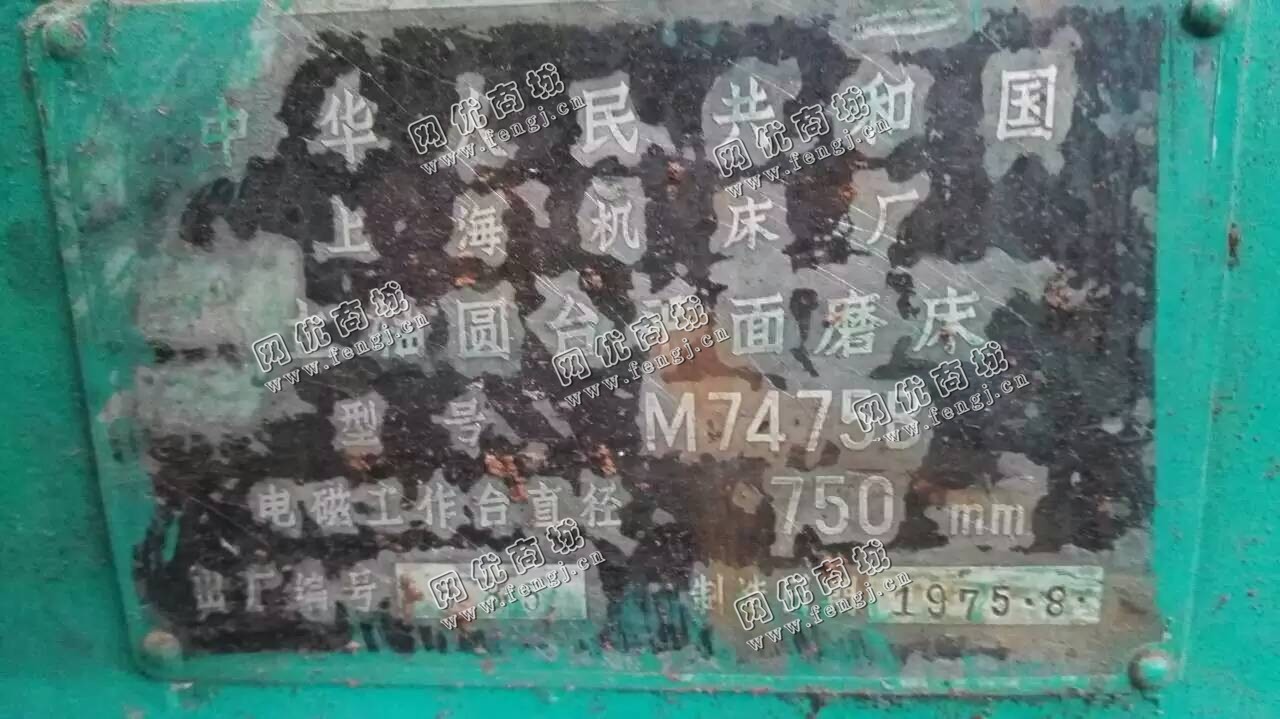 中华人民共和国
上海机床厂
轴圆台平面磨床
型号 M7475
电磁工作台直径 750 mm
出厂编号
制造 1975.8.
网优商城
www.fengj.cn
网优商城
www.fengj.cn
网优商城
www.fengj.cn
网优商城
www.fengj.cn
网优商城
www.fengj.cn
网优商城
www.fengj.cn
网优商城
www.fengj.cn